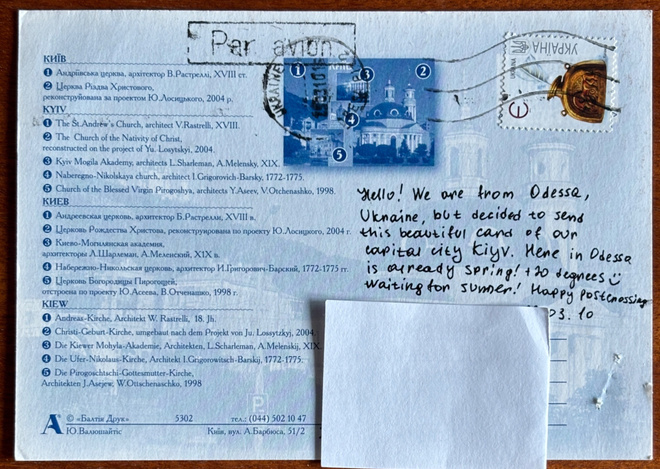 Par avion
УКРАЇНА
Є
КИЇВ
1 Андріївська церква, архітектор В.Растреллі, XVIII ст.
2 Церква Різдва Христового,
реконструйована за проектом Ю.Лосицького, 2004 р.
KYIV
1 The St.Andrew's Church, architect V.Rastrelli, XVIII.
2 The Church of the Nativity of Christ,
reconstructed on the project of Yu. Losytskyj, 2004.
3 Kyiv Mogila Akademy, architects L.Sharleman, A.Melensky, XIX.
4 Naberegno-Nikolska church, architect I.Grigorovich-Barsky, 1772-1775.
5 Church of the Blessed Virgin Pirogoshya, architects Y.Aseev, V.Otchenashko, 1998.
КИЕВ
1 Андреевская церковь, архитектор Б.Растрелли, XVIII в.
2 Церковь Рождества Христова, реконструирована по проекту Ю.Лосицкого, 2004 г.
3 Киево-Могилянская академия,
архитекторы Л.Шарлеман, А.Меленский, XIX в.
4 Набережно-Никольская церковь, архитектор И.Григорович-Барский, 1772-1775 гг.
5 Церковь Богородицы Пирогощей,
отстроена по проекту Ю.Асеева, В.Отченашко, 1998 г.
KIEW
1 Andreas-Kirche, Architekt W. Rastrelli, 18. Jh.
2 Christi-Geburt-Kirche, umgebaut nach dem Projekt von Ju. Lossytzkyj, 2004.
3 Die Kiewer Mohyla-Akademie, Architekten, L.Scharleman, A.Melenskij, XIX.
4 Die Ufer-Nikolaus-Kirche, Architekt I.Grigorowitsch-Barskij, 1772-1775.
5 Die Pirogoschtschi-Gottesmutter-Kirche,
Architekten J.Asejew, W.Ottschenaschko, 1998
© «Балтія Друк» 5302 тел.: (044) 502 10 47
Ю.Валюшайтіс Київ, вул. А.Барбюса, 51/2
1
2
3
4
5
Hello! We are from Odessa,
Ukraine, but decided to send
this beautiful card of our
capital city Kiyv. Here in Odessa
is already spring! +20 degrees
Waiting for summer! Happy postcrossing
03. 10